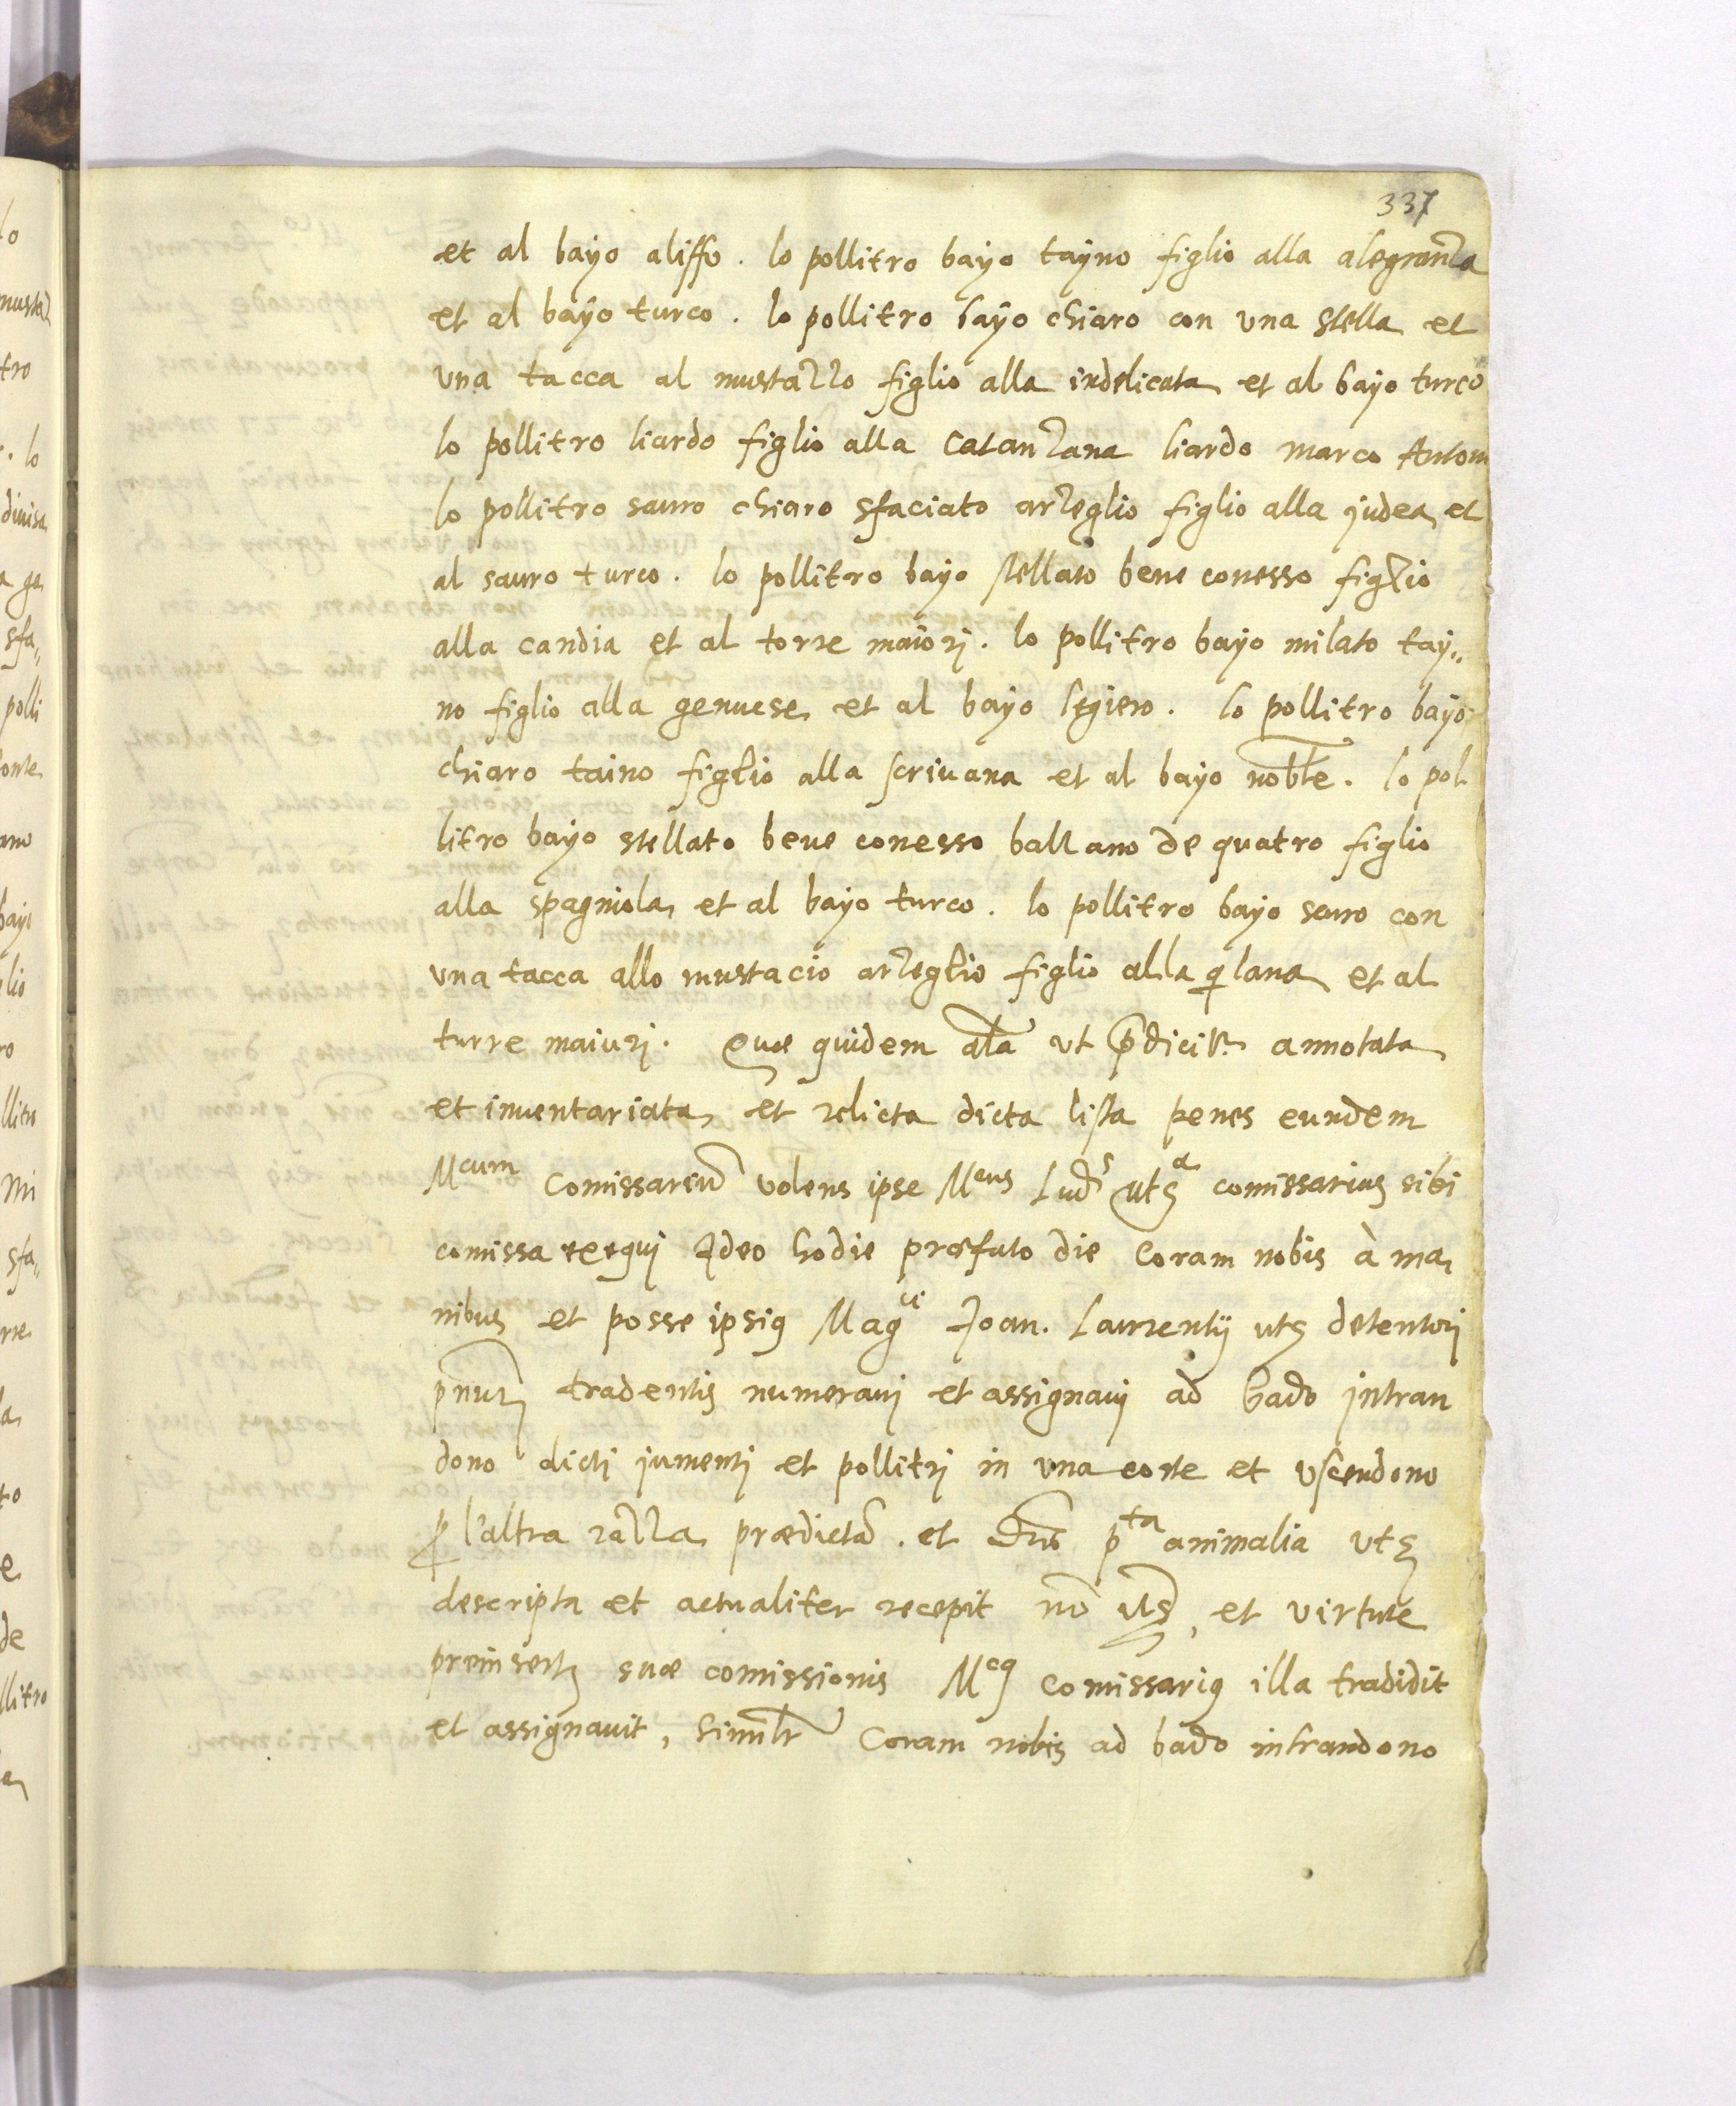 337
et al bayo aliffo. lo pollitro bayo tayno figlio alla alegranza
et al bayo turco. lo pollitro bayo chiaro con una stella et
una tacca al mustazzo figlio alla indelicata et al bayo turco
lo pollitro liardo figlio alla catanzana liardo marco Anton
lo pollitro sauro chiaro sfaciato arzeglio figlio alla judea et
al sauro turco. lo pollitro bayo stellato bene conesso figlio
alla candia et al torre maiori. lo pollitro bayo milato tay„
no figlio alla genuese et al bayo legiero. lo pollitro bayo
chiaro taino figlio alla scrivana et al bayo noble. lo pol
litro bayo stellato bene conesso balzano de quatro figlio
alla spagniola et al bayo turco. lo pollitro bayo scuro con
una tacca allo mustacio arzeglio figlio alla et al
turre maiuri. Quae quidem aĩa ut p̃dicit.r annotata
et inventariata et relicta dicta lista penes eundem
Mcum Comissariũ volens ipse Mcus Ludcs uts comissarius sibi
comissa exequi Ideo hodie praefato die Coram nobis à ma
nibus et posse ipsius Magci Joan. Laurentij uts detentori
pñti tradentis numeravi et assignavi ad bado intran
dono dicti jumenti et pollitri in una corte et uscendono
p l'altra razza praedictã. et p.ta animalia uts
descripta et actualiter recepit nõ uts, et virtute
preinserte suae comissionis Mcus Comissarius illa tradidit
et assignavit, similr Coram nobis ad bado intrandono